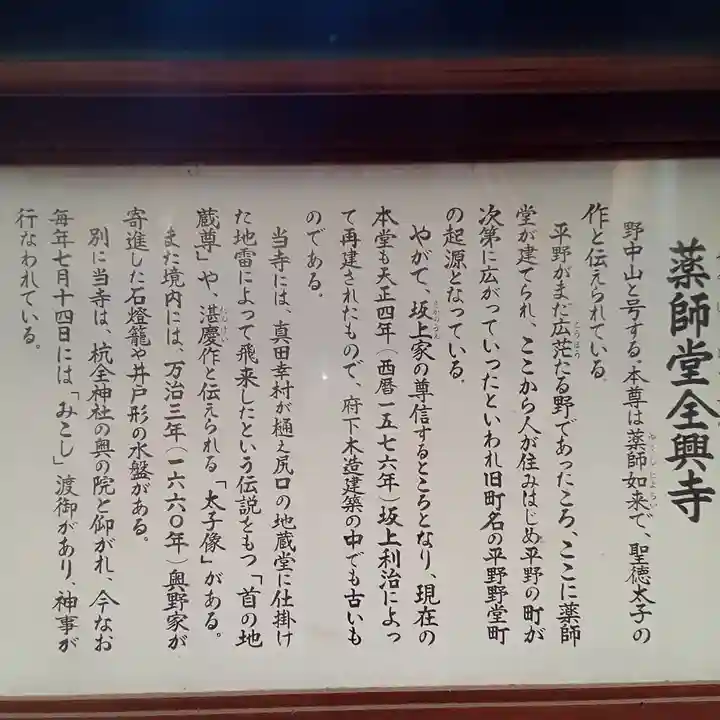 薬師堂全興寺
野中山と号する。本尊は薬師如来で、聖徳太子の
作と伝えられている。
平野がまだ広茫たる野であったころ、ここに薬師
堂が建てられ、ここから人が住みはじめ平野の町が
次第に広がっていったといわれ旧町名の平野野堂町
の起源となっている。
やがて、坂上家の尊信するところとなり、現在の
本堂も天正四年(西暦一五七六年)坂上利治によっ
て再建されたもので、府下木造建築の中でも古いも
のである。
当寺には、真田幸村が樋之尻口の地蔵堂に仕掛け
た地雷によって飛来したという伝説をもつ「首の地
蔵尊」や、湛慶作と伝えられる「太子像」がある。
また境内には、万治三年(一六六〇年)奥野家が
寄進した石燈籠や井戸形の水盤がある。
別に当寺は、杭全神社の奥の院と仰がれ、今なお
毎年七月十四日には「みこし」渡御があり、神事が
行なわれている。